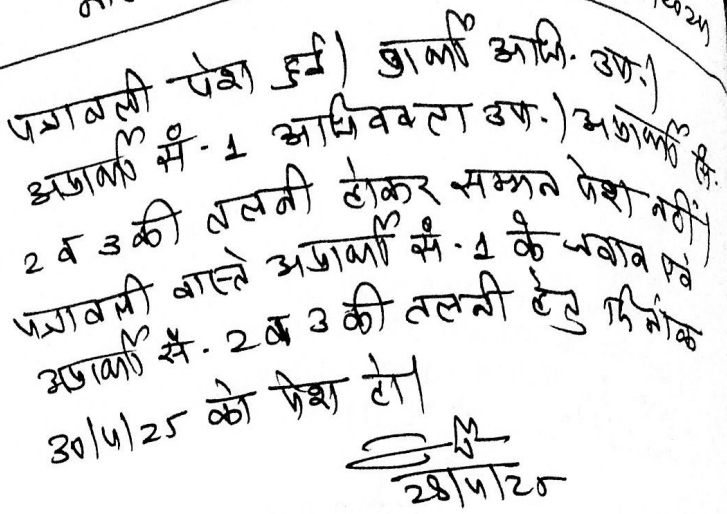 पत्रावली पेश हुई। प्रार्थी अधि. उप.।
अप्रार्थी सं. 1 अधिवक्ता उप.। अप्रार्थी सं.
2 व 3 की तलबी होकर सम्मन पेश नहीं।
पत्रावली वास्ते अप्रार्थी सं. 1 के जवाब एवं
अप्रार्थी सं. 2 व 3 की तलबी हेतु दिनांक
30/4/25 को पेश हो।
28/4/25